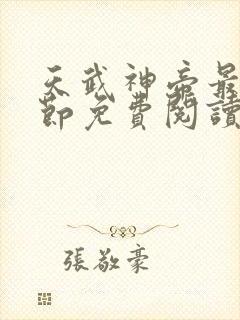 天武神帝最
節免費閱讀
張敬豪